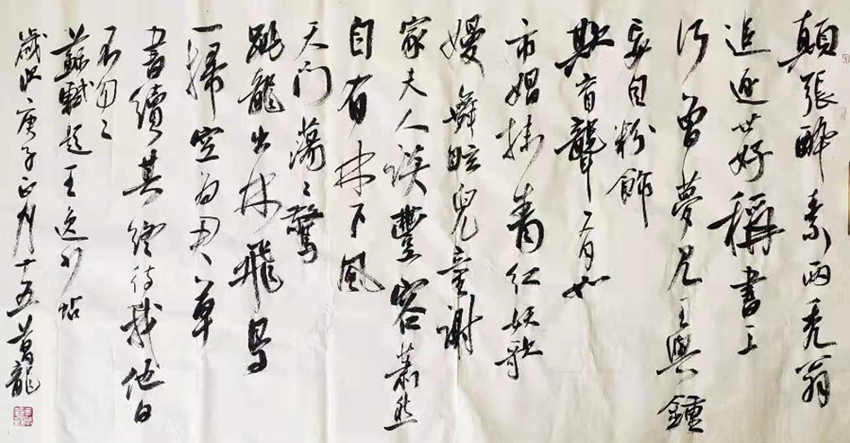 顛張醉素兩禿翁
追逐世好稱書工
何曾夢見王與鍾
妄自粉飾
欺盲聾有如
市娼抹青紅妖歌
嫚舞眩兒童謝
家夫人淡豐容蕭然
自有林下風
天门蕩々驚
跳龍出林飛鳥
一掃空為君草
書續其終待我他日
不匆々
蘇軾題王逸少帖
歲次庚子正月十五萬龍